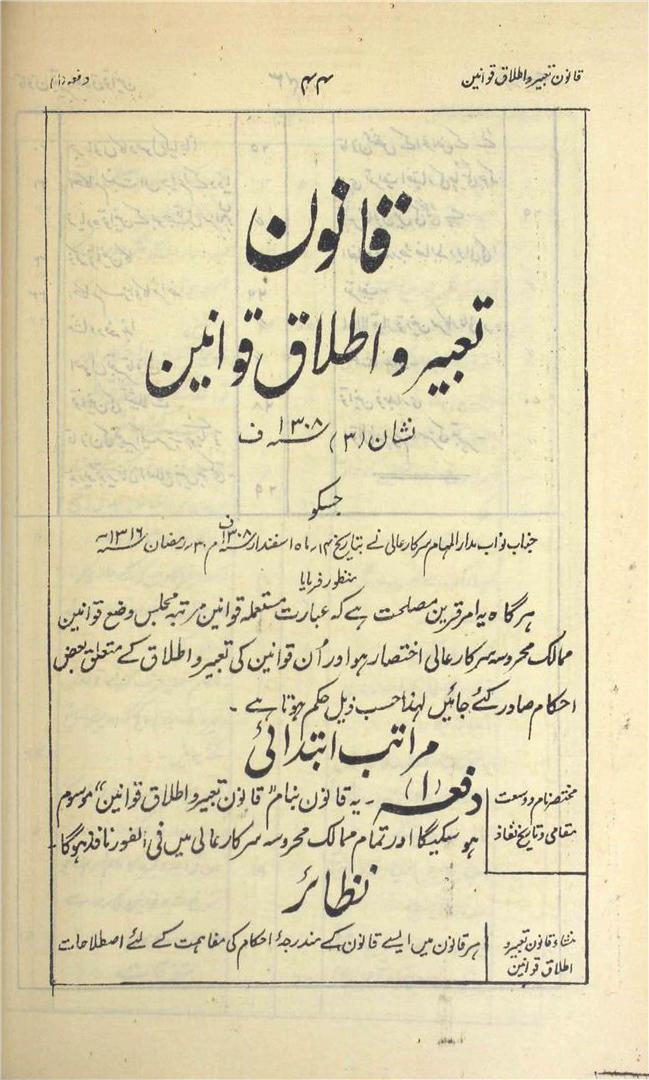 قانون تعبیر و اطلاق قوانین
۴۴
دفعہ (۱)
قانون
تعبیر و اطلاق قوانین
نشان (۳) ۱۳۰۸ سنہ ف
جسکو
جناب نواب مدار المہام سرکار عالی نے بتاریخ ۱۴۔ ماہ اسفندار سنہ ۱۳۰۸ ف م ۳۰۔ رمضان سنہ ۱۳۱۶ ھ
منظور فرمایا
ہر گاہ یہ امر قرین مصلحت ہے کہ عبارت مستعملہ قوانین مرتبہ مجلس وضع قوانین
ممالک محروسہ سرکار عالی اختصار ہو اور اُن قوانین کی تعبیر و اطلاق کے متعلق بعض
احکام صادر کئے جائیں لہذا حسب ذیل حکم ہوتا ہے ۔
مراتب ابتدائی
مختصر نام و وسعت
مقامی و تاریخ نفاذ
دفعہ (۱) ۔ یہ قانون بنام "قانون تعبیر و اطلاق قوانین" موسوم
ہو سکیگا اور تمام ممالک محروسہ سرکار عالی میں فی الفور نافذ ہوگا ۔
نظائر
منشاء قانون تعبیر و
اطلاق قوانین
ہر قانون میں ایسے قانون کے مندرجۂ احکام کی مفاہمت کے لئے اصطلاحات